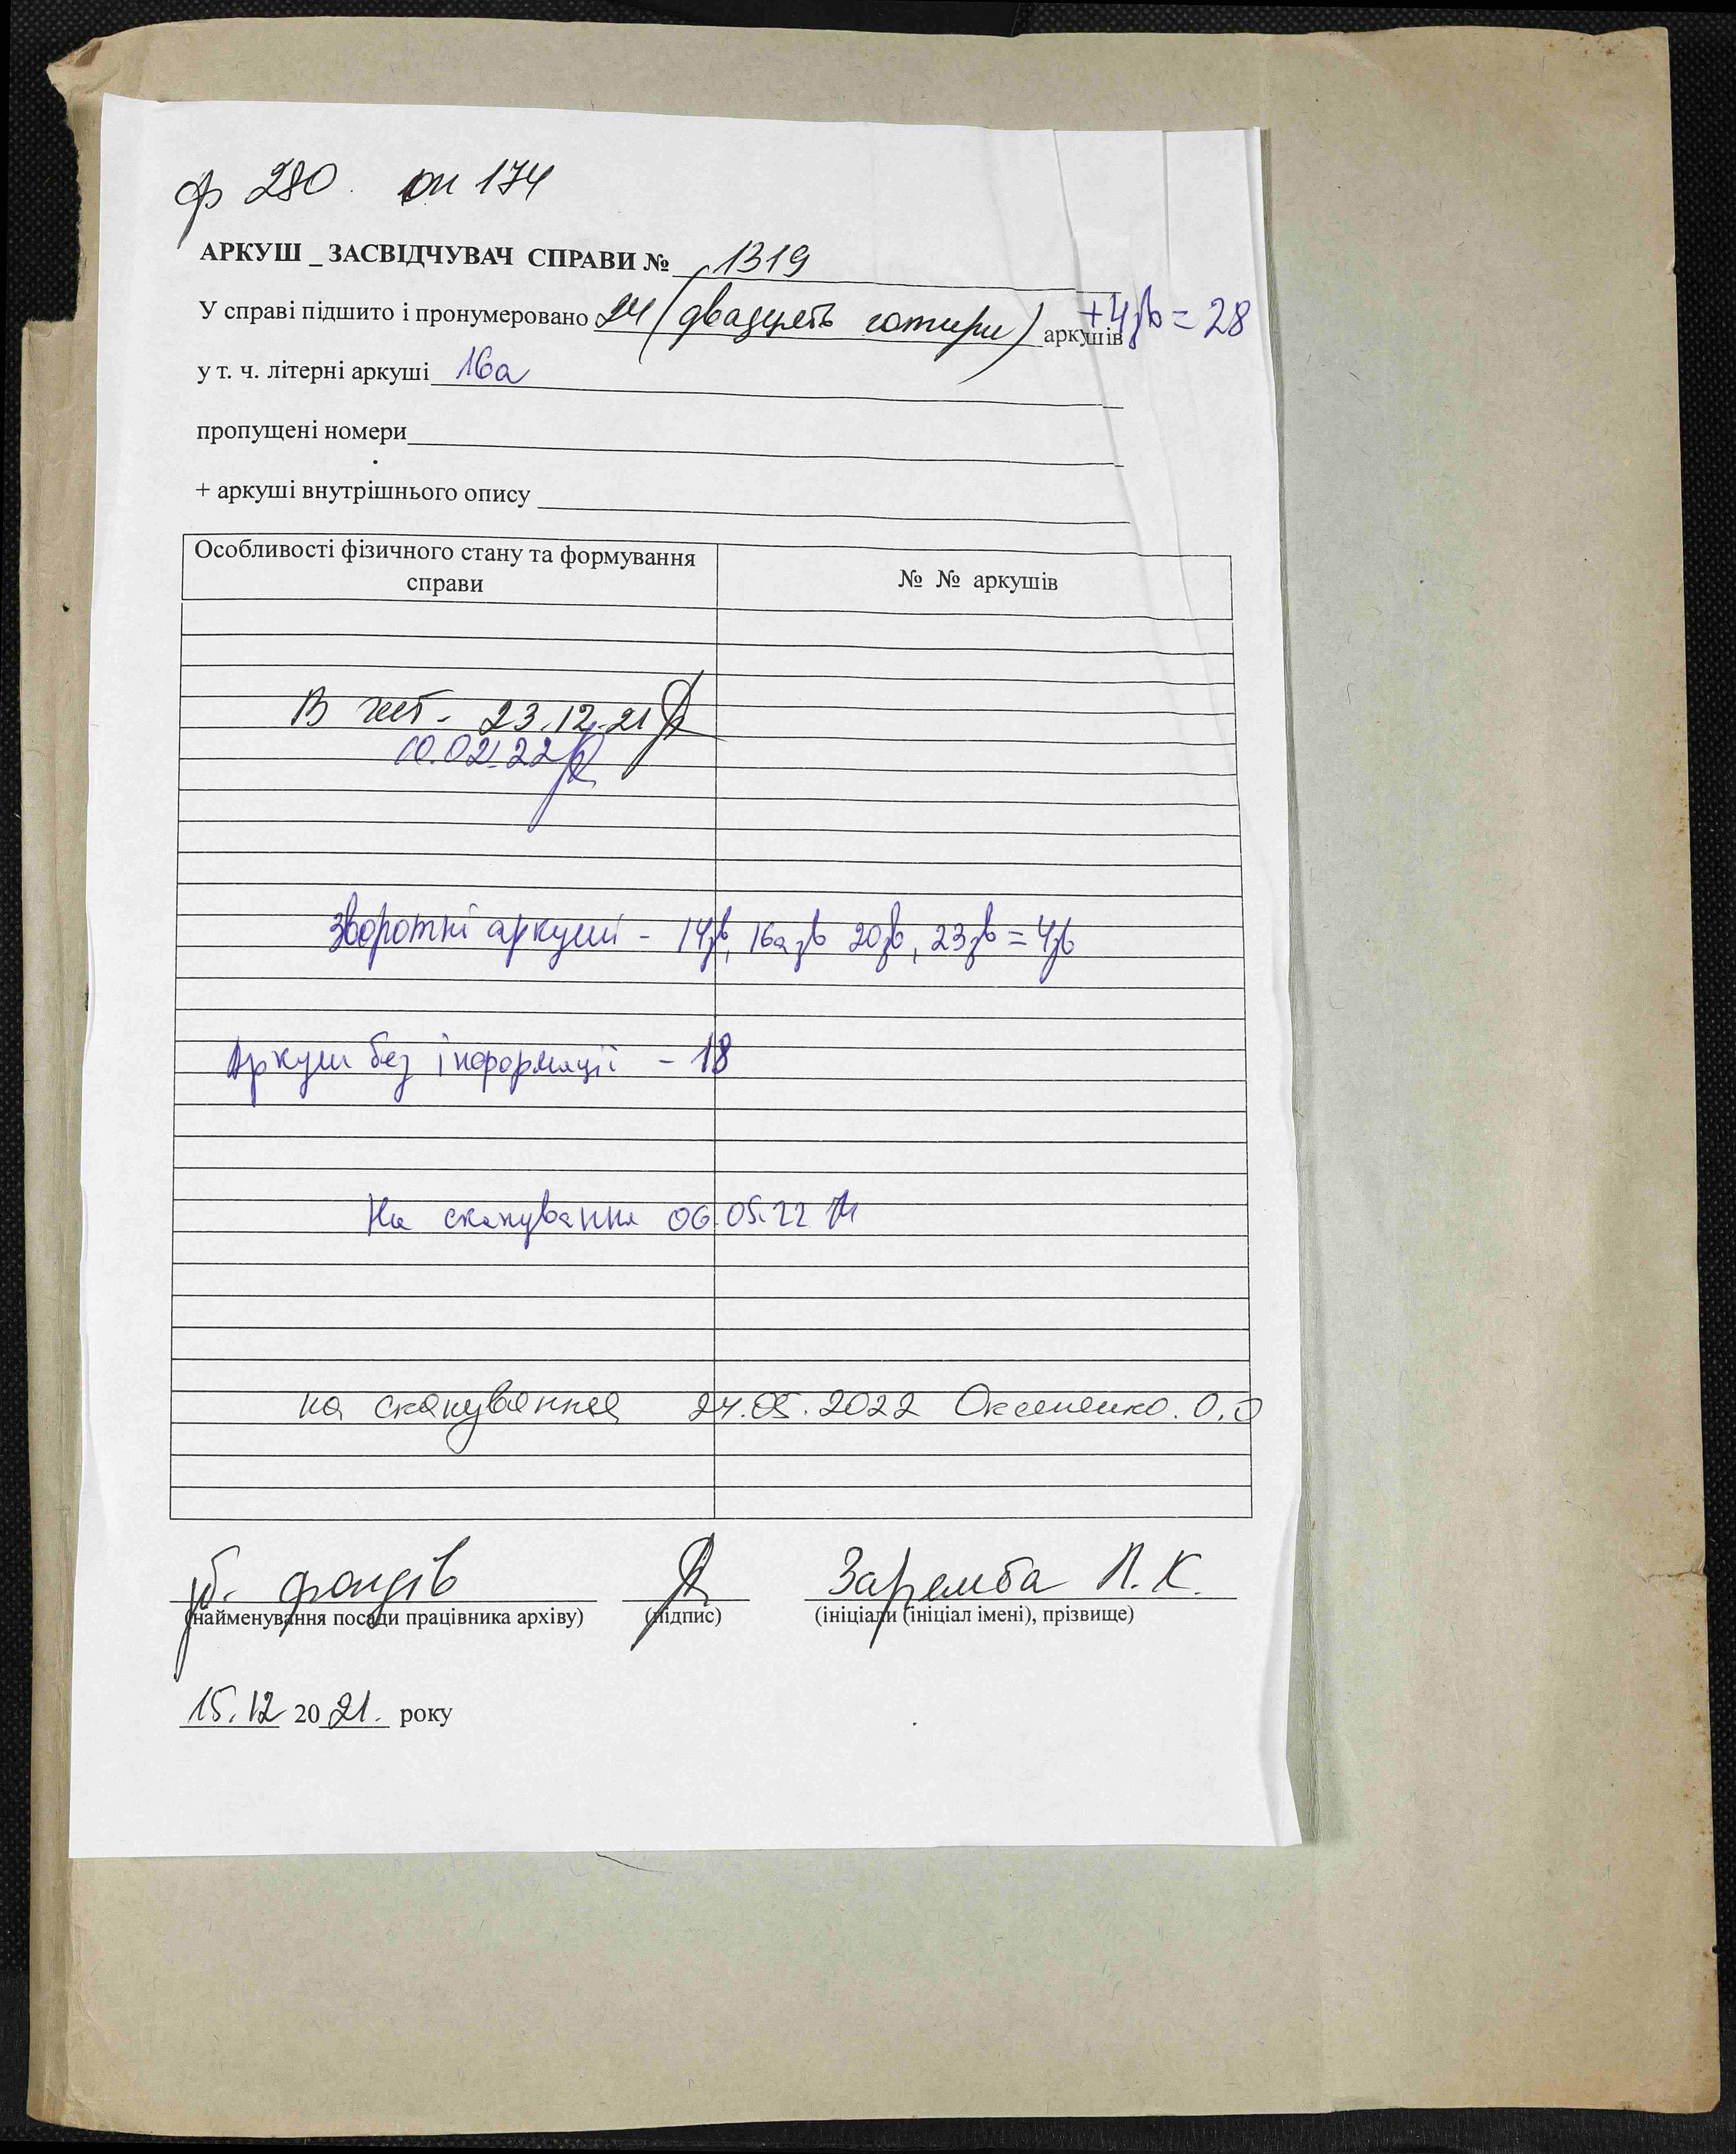 ф 280. оп 174
АРКУШ _ ЗАСВІДЧУВАЧ СПРАВИ № 1319
У справі підшито і пронумеровано 24 (двадцять чотири) аркушів +4зв = 28
у т. ч. літерні аркуші 16а
пропущені номери
+ аркуші внутрішнього опису
Особливості фізичного стану та формування справи
№ № аркушів
В 23.12.21
10.02.22
Зворотні аркуші - 14зв, 16а зв 20зв, 23зв = 4зв
Аркуш без інформації - 18
На сканування 06.05.22
на сканування 24.05.2022 О.О
фондів Заремба Л. К.
(найменування посади працівника архіву) (підпис) (ініціали (ініціал імені), прізвище)
15.12 2021. року